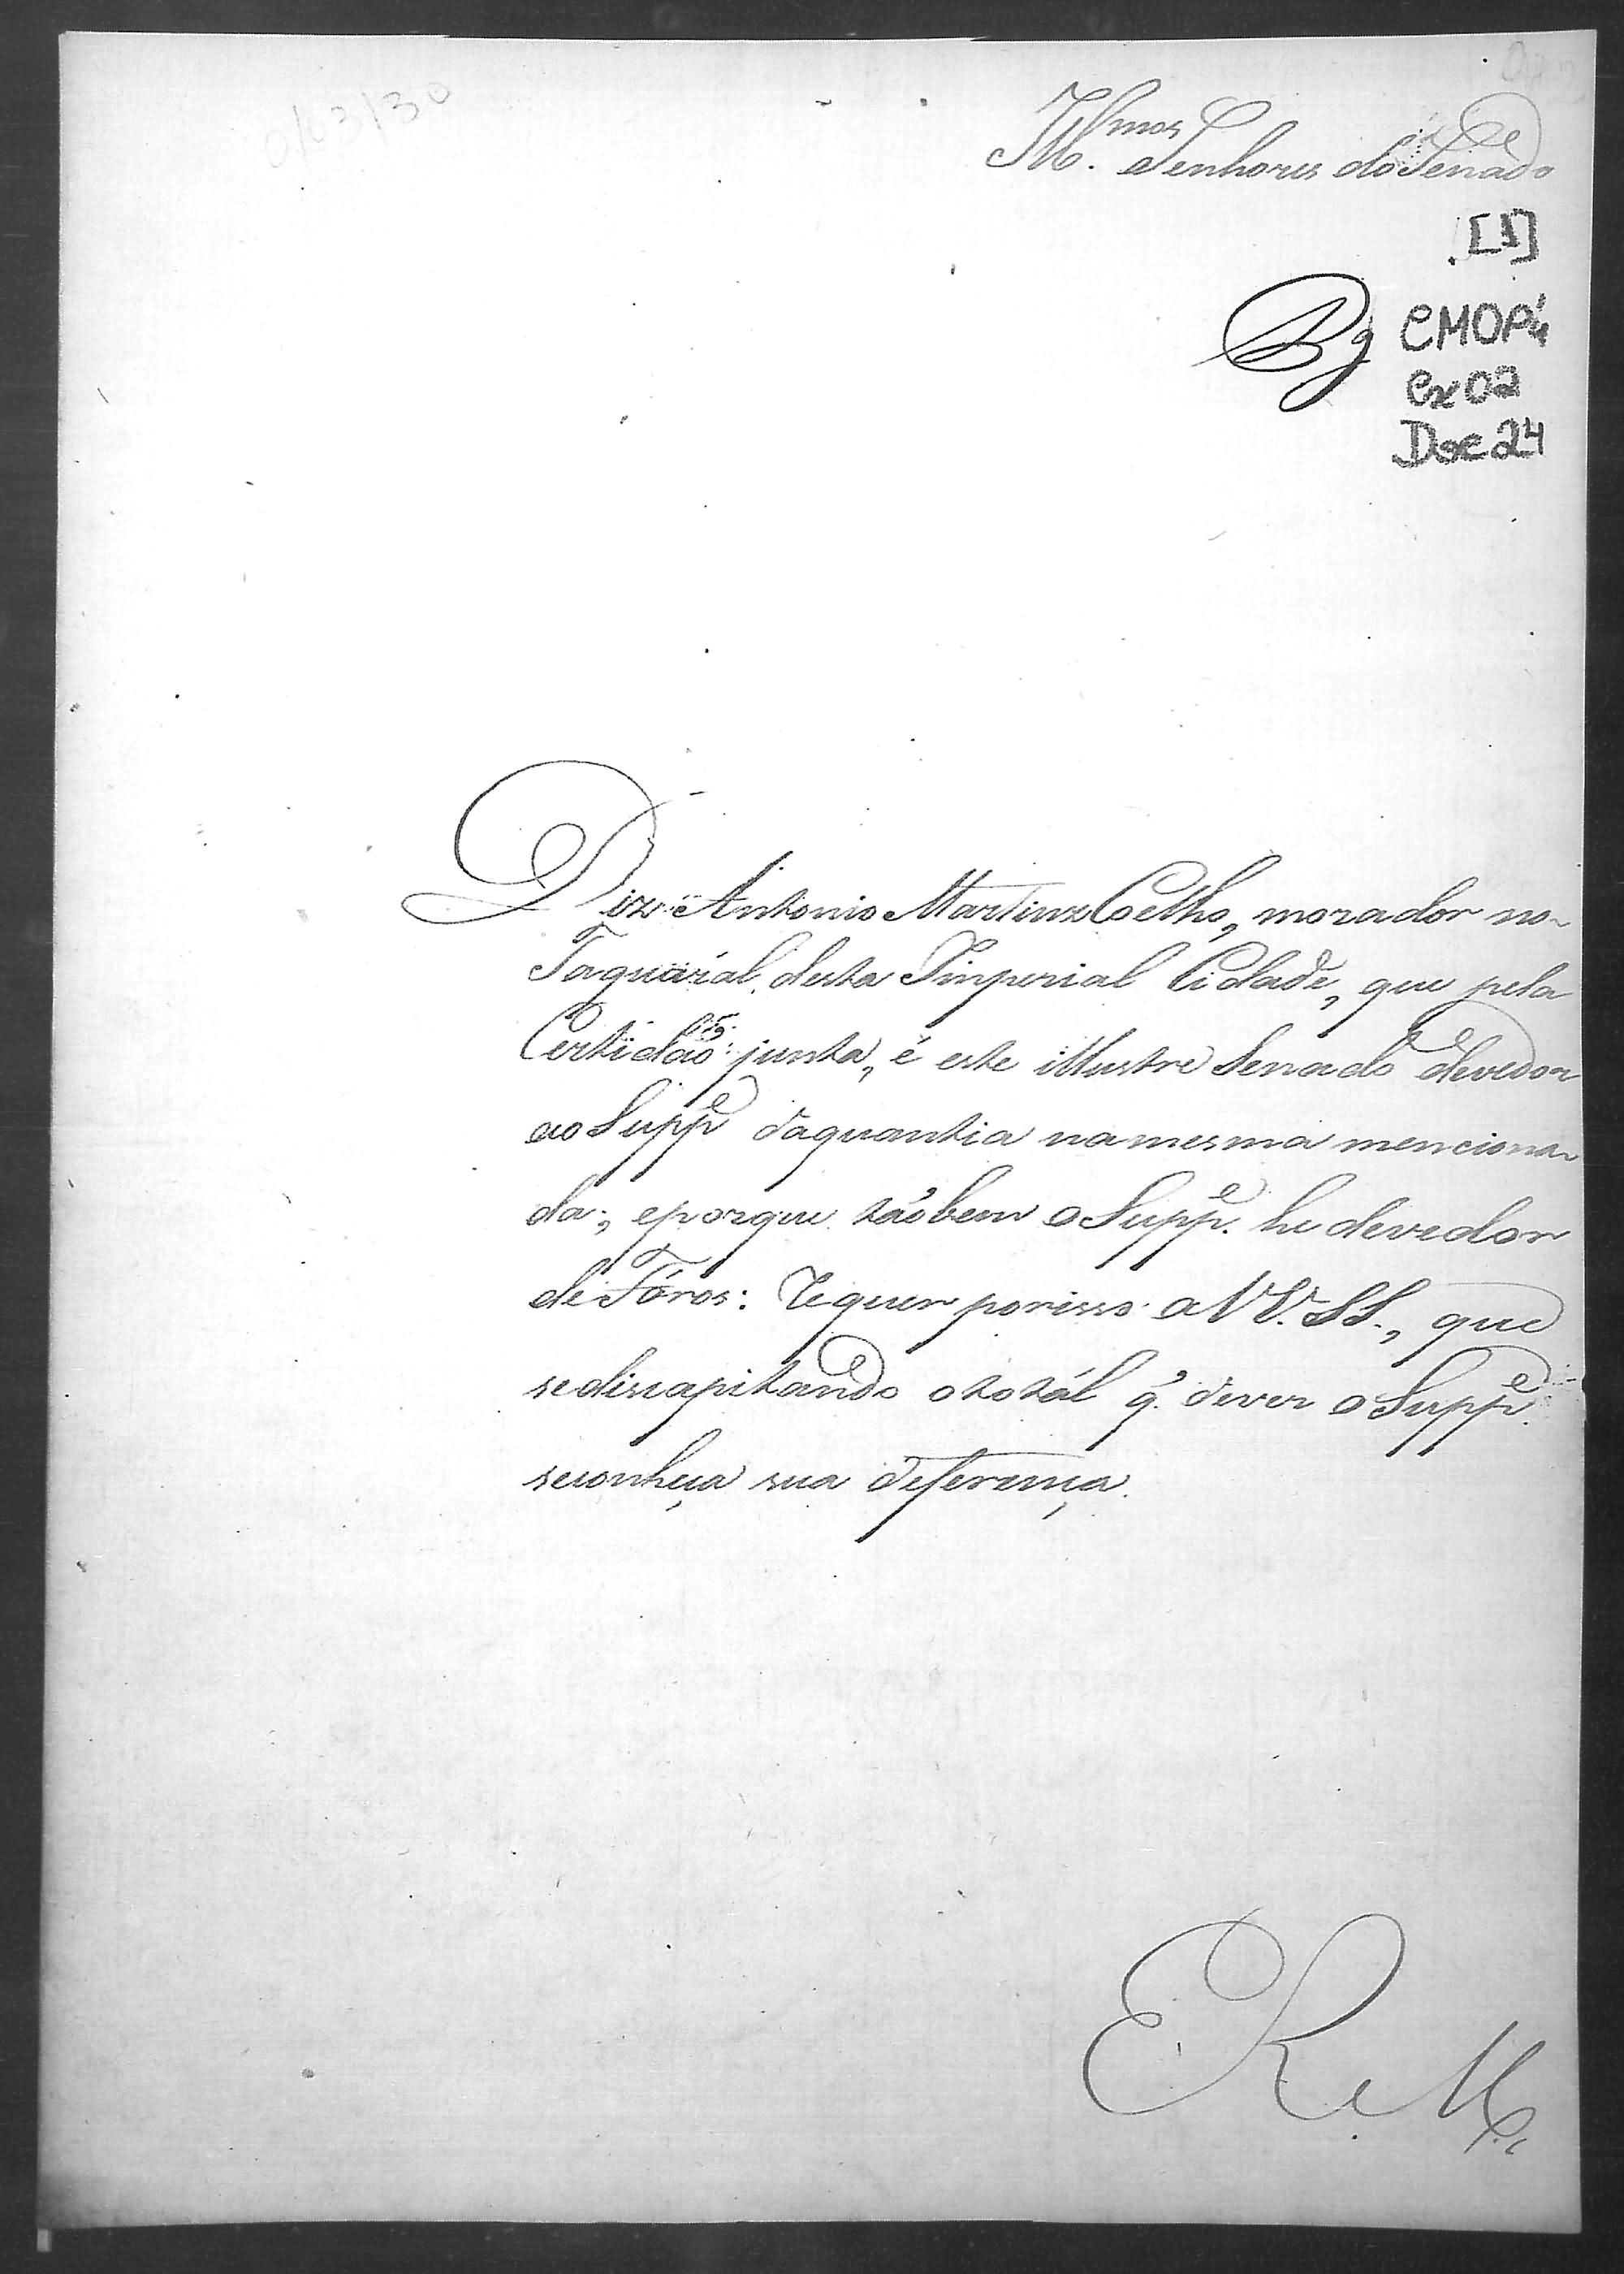 Ill.mos Senhores do Senado
[1]
CMOP
Cx 02
Doc 24
Diz Antonio Martins Coelho, morador no
Taquarál, desta Imperial Cidade, que pela
Certidão junta, é este illustre Senado devedor
ao Supp.e daquantia namesma menciona-
da; eporque táobem o Supp.e he devedor
de Fóros: Requer porisso a VV. SS., que
sediscapitando ototál q. dever o Supp.e
seconheça sua deferença.
E R M.ce